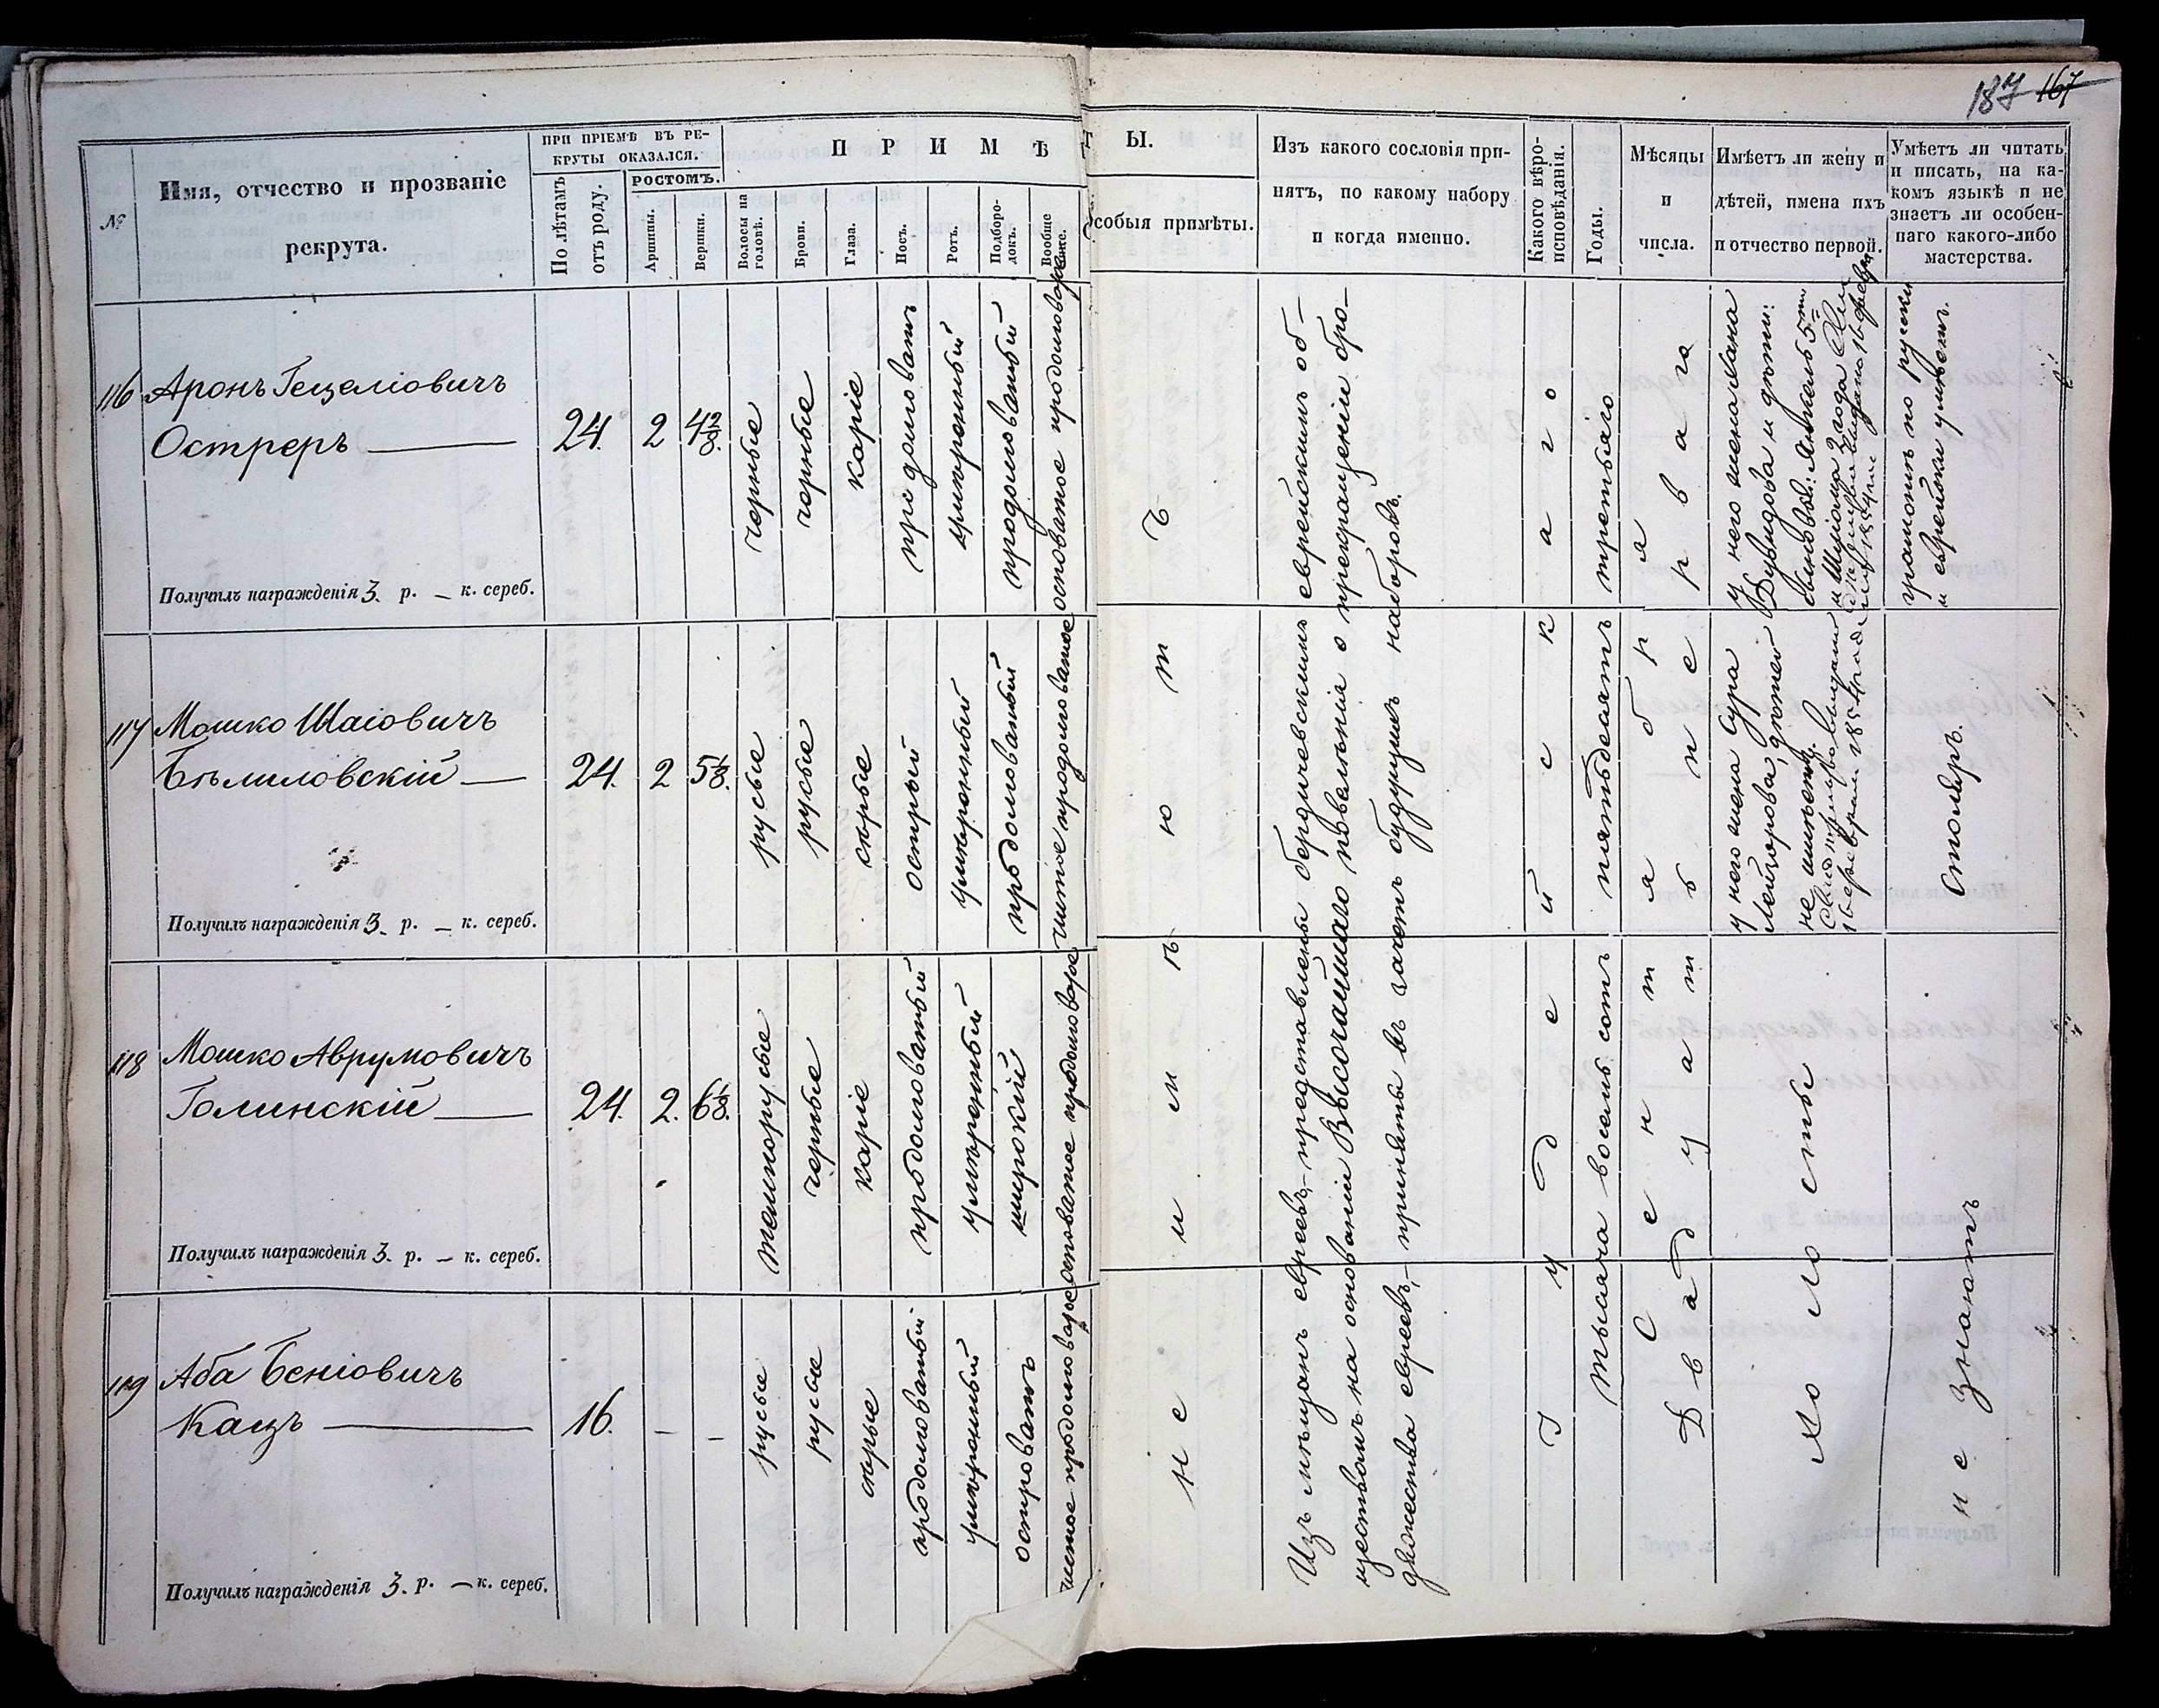 187 167
№
Имя, отчество и прозваніе
рекрута.
ПРИ ПРІЕМѢ ВЪ РЕ-
КРУТЫ ОКАЗАЛСЯ.
По лѣтамъ
отъ роду.
РОСТОМЪ.
Аршины.
Вершки.
ПРИМѢТЫ.
Волосы на
головѣ.
Брови.
Глаза.
Носъ.
Ротъ.
Подборо-
докъ.
Вообще
собыя примѣты.
Изъ какого сословія при-
нятъ, по какому набору
и когда именно.
Какого вѣро-
исповѣданія.
Годы.
Мѣсяцы
и
числа.
Имѣетъ ли жену и
дѣтей, имена ихъ
и отчество первой.
Умѣетъ ли читать
и писать, на ка-
комъ языкѣ и не
знаетъ ли особен-
наго какого-либо
мастерства.
116
Аронъ Гецеліовичъ
Остреръ
Получилъ награжденія 3. р. — к. сереб.
24.
2
4 2/8.
черные
черные
каріе
продолговатъ
умѣренный
продолговатый
117
Мошко Шаіовичъ
Бѣлиловскій
Получилъ награжденія 3. р. — к. сереб.
24.
2
5 1/8.
русые
русые
сѣрые
острый
умѣренный
продолговатый
чистое продолговатое
118
Мошко Аврумовичъ
Голинскій
Получилъ награжденія 3. р. — к. сереб.
24.
2.
6 1/8.
темнорусые
черные
каріе
продолговатый
умѣренный
широкій
119
Аба Беніовичъ
Кацъ
Получилъ награжденія 3. р. — к. сереб.
16.
—
—
русые
русые
сѣрые
продолговатый
умѣренный
островатъ
не имѣютъ
Изъ мѣщанъ евреевъ,– представлены бердичевскимъ еврейскимъ об-
ществомъ на основаніи Высочайшаго повелѣнія о прекращеніи бро-
дяжества евреевъ,– приняты въ зачетъ будущихъ наборовъ.
Іудейскаго
Тысяча восемь сотъ пятьдесятъ третьяго
Сентября
Двадцать перваго
у него жена Хана
Дувидова и дѣти:
сыновья: Янкель 5
и Шліома 2 года
у него жена Сура
Лейзорова, дѣтей
не имѣетъ.
Холосты
грамотѣ по русски
и еврейски умѣетъ.
Столяръ.
не знаютъ